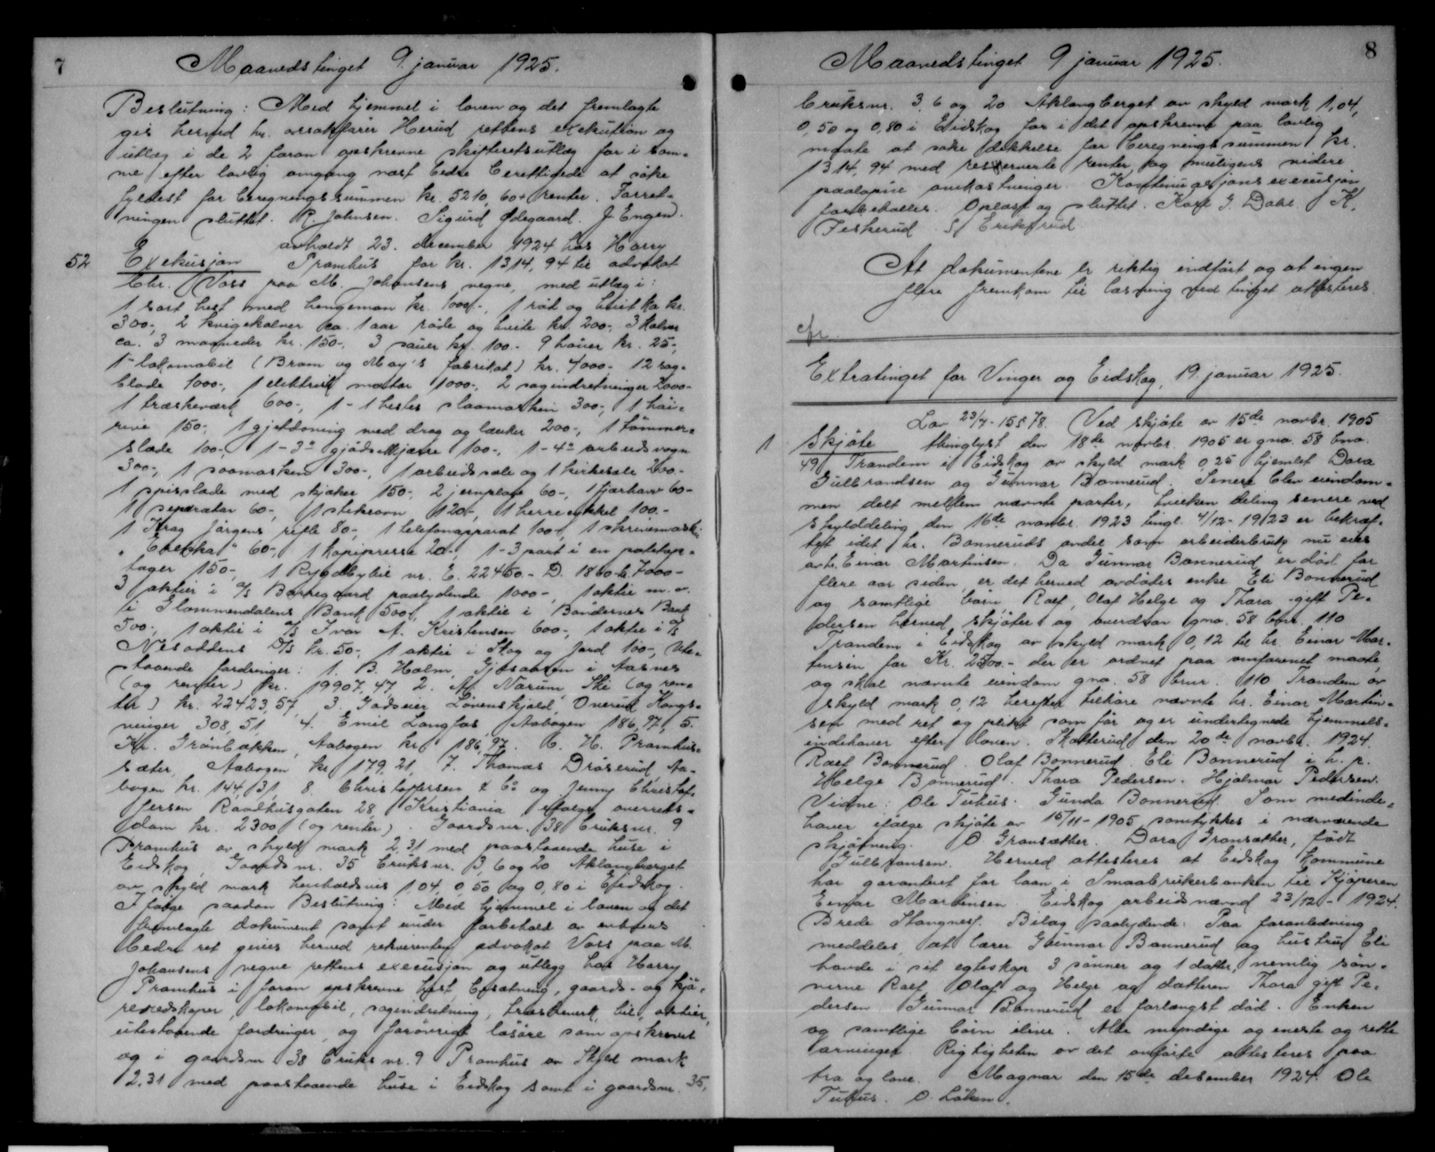 7
Maanedstinget 9. januar 1925.
Beslutning: Med hjemmel i loven og det fremlagte
gis herved hr. orsakfører Herud rettens exekution og
utlæg i de 2 foran opskrevne skifteretsutlæg for i sam-
me efter lovlig omgang næst bedre berettigede at søke
fyldest for beregningssummen kr. 5210,60 + renter. Forret-
ningen sluttet. R. Johnsen. Sigurd Ødegaard. J. Engen.
avholdt 23. december 1924 hos Harry
52 Exekusjon Pramhus for kr. 1314,94 til advokat
Chr. Voss paa M. Johansens vegne, med utlæg i:
1 sort hest med hengeman kr. 1000.-, 1 rød og hvit ku kr.
300.-, 2 kvigekalver ca. 1 aar røde og hvite kr. 200.-, 3 kalver
ca. 3 maaneder kr. 150.-, 3 sauer kr. 100.- 9 høner kr. 25.-,
1 lokomobil (Brown og May's fabrikat) kr. 4000.- 12 sag-
blade 1000.-, 1 elektrisk motor 1000.-, 2 sagindretninger 2000.-
1 træskeværk 600.-, 1 - 1 hestes slaamaskin 300.-, 1 høi-
rive 150.-, 1 gjeldoning med drag og lænker 200.-, 1 tømmer-
slade 100.-, 1 - 3" gjødselkjærre 100.-, 1 - 4" arbeidsvogn
300.-, 1 saamaskin 300.-, 1 arbeidssale og 1 kirkesale 200.-
1 spisslade med skjæker 150.-, 2 jernplove 60.-, 1 fjærharv 60.-
1 separator 60.-, 1 stekeovn 120.-, 1 herresykkel 100.-
1 Krag Jørgens rifle 80.-, 1 telefonapparat 100.-, 1 skrivemaski
"Erika" 60.-, 1 kopipresse 20.-, 1 - 3 part i en potetop-
tager 150.-, 1 Ryodbybil nr. E. 22450 - D. 1860 kr. 7000.-
3 aktier i A/S Borregaard paalydende 1000.-, 1 aktie m. v.
i Glommendalens Bank 500.-, 1 aktie i Bøndernes Bank
500.-, 1 aktie i A/S Ivar A. Kristensen 600.-, 1 aktie i A/S
Nesoddens D/S kr. 50.-, 1 aktie i Skog og Jord 100.-, Ute-
staaende fordringer: 1. B. Holm, Gjøsaasen i Aasnes
(og renter) kr. 19907,47, 2. M. Narum, Ski (og ren-
ter) kr. 22423,57, 3. Godseier Løvenskjold, Onsrud Kongs-
vinger 308,51, 4. Emil Langfos, Aabogen 186,77, 5.
Kr. Grønbækken, Aabogen kr. 186,97. 6. H. Pramhus-
sæter, Aabogen kr. 179,21, 7. Thomas Drøserud, Aa-
bogen kr. 144,31, 8. Christoffersen & Co og Jenny Christof-
fersen Raadhusgaten 28 Kristiania ifølge overrets-
dom kr. 2300 (og renter). Gaardsnr. 38 bruksnr. 9
Pramhus av skyld mark 2,31 med paastaaende huse i
Eidskog, Gaardsnr. 35 bruksnr. 3, 6 og 20 Aklangberget
av skyld mark henholdsvis 1,04, 0,50 og 0,80 i Eidskog.
Ifølge saadan Beslutning: Med hjemmel i loven og det
fremlagte dokument samt under forbehold av enhvers
bedre ret gives herved rekvirenten advokat Voss paa M.
Johansens vegne rettens execusjon og utlegg hos Harry
Pramhus i foran opskrevne hest besætning, gaards- og kjø-
reredskaper, lokomobil, sagindretning, træskeverk, bil, aktier,
utestaaende fordringer, og forøvrig løsøre som opskrevet
og i gaardsnr 38 bruksnr. 9 Pramhus av Skyld mark
2,31 med paastaaende huse i Eidskog samt i gaardsnr. 35,
8
Maanedstinget 9 januar 1925.
bruksnr. 3, 6 og 20 Aklangberget av skyld mark 1,04,
0,50 og 0,80 i Eidskog for i det opskrevne paa lovlig
maate at søke dekkelse for beregningssummen kr.
1314,94 med reserverte renter og muligens videre
paaløpne omkostninger. Kontinuasjonsexecusjon
forbeholdes. Oplæst og sluttet. Kaare G. Dahl. K.
Feskerud. S. Eriksrud.
At dokumentene er riktig indført og at ingen
flere fremkom til læsning ved tinget attesteres
cfr.
Extratinget for Vinger og Eidskog, 19 januar 1925.
Lov 23/7-1558/78. Ved skjøte av 15de novbr. 1905
1 Skjøte thinglyst den 18de novbr. 1905 er gno. 58 bno.
49 Trandem i Eidskog av skyld mark 0,25 hjemlet Dora
Gulbrandsen og Gunnar Bonnerud. Senere blev eiendom-
men delt mellem nævnte parter, hvilken deling senere ved
skylddeling den 16de novbr. 1923 tingl. 4/12-1923 er bekræf-
tet idet hr. Bonneruds andel som arbeiderbruk nu eies
av hr. Einar Martinsen. Da Gunnar Bonnerud er død for
flere aar siden, er det herved avdødes enke Eli Bonnerud
og samtlige barn, Ralf, Olaf Helge og Thora gift Pe-
dersen herved, skjøter og overdrar gno. 58 bnr. 110
Trandem i Eidskog av skyld mark 0,12 til hr. Einar Mar-
tinsen for Kr. 2500.- der er ordnet paa omforenet maate,
og skal nævnte eiendom gno. 58 bnr. 110 Trandem av
skyld mark 0,12 herefter tilhøre nævnte hr. Einar Martin-
sen med ret og plikt som før og er undertegnede hjemmels-
indehaver efter loven. Skotterud den 20de novbr. 1924.
Ralf Bonnerud. Olaf Bonnerud. Eli Bonnerud i h. p.
Helge Bonnerud. Thora Pedersen. Hjalmar Pedersen.
Vidne: Ole Tuhus. Gunda Bonnerud. Som medinde-
haver ifølge skjøte av 15/11-1905 samtykkes i nærværende
skjøtning. O Gransæther. Dora Gransæther, født
Gulbransen. Herved attesteres at Eidskog kommune
har garanteret for laan i Smaabrukerbanken til Kjøperen
Einar Martinsen. Eidskog arbeidsnævnd 23/12-1924.
Brede Stangnes. Bilag saalydende: Paa foranledning
meddeles, at lærer Gunnar Bonnerud og hustru Eli
havde i sit egteskap 3 sønner og 1 datter, nemlig søn-
nerne Ralf, Olaf og Helge og datteren Thora gift Pe-
dersen. Gunnar Bonnerud er forlængst død. Enken
og samtlige barn ilive. Alle myndige og eneste og rette
arvinger. Rigtigheten av det anførte attesteres paa
tro og love. Magnor den 15de desember 1924. Ole
Tuhus. O. Løken.